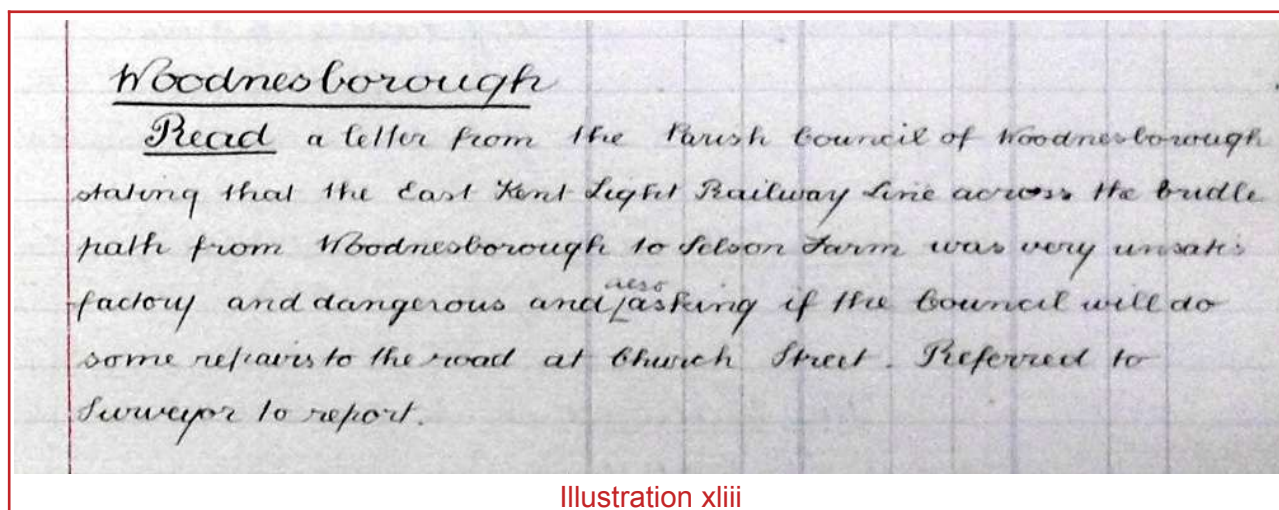 Woodnesborough
Read a letter from the Parish Council of Woodnesborough
stating that the East Kent Light Railway Line across the bridle
path from Woodnesborough to Selson Farm was very unsatis
factory and dangerous and also asking if the Council will do
some repairs to the road at Church Street. Referred to
Surveyor to report.
Illustration xliii